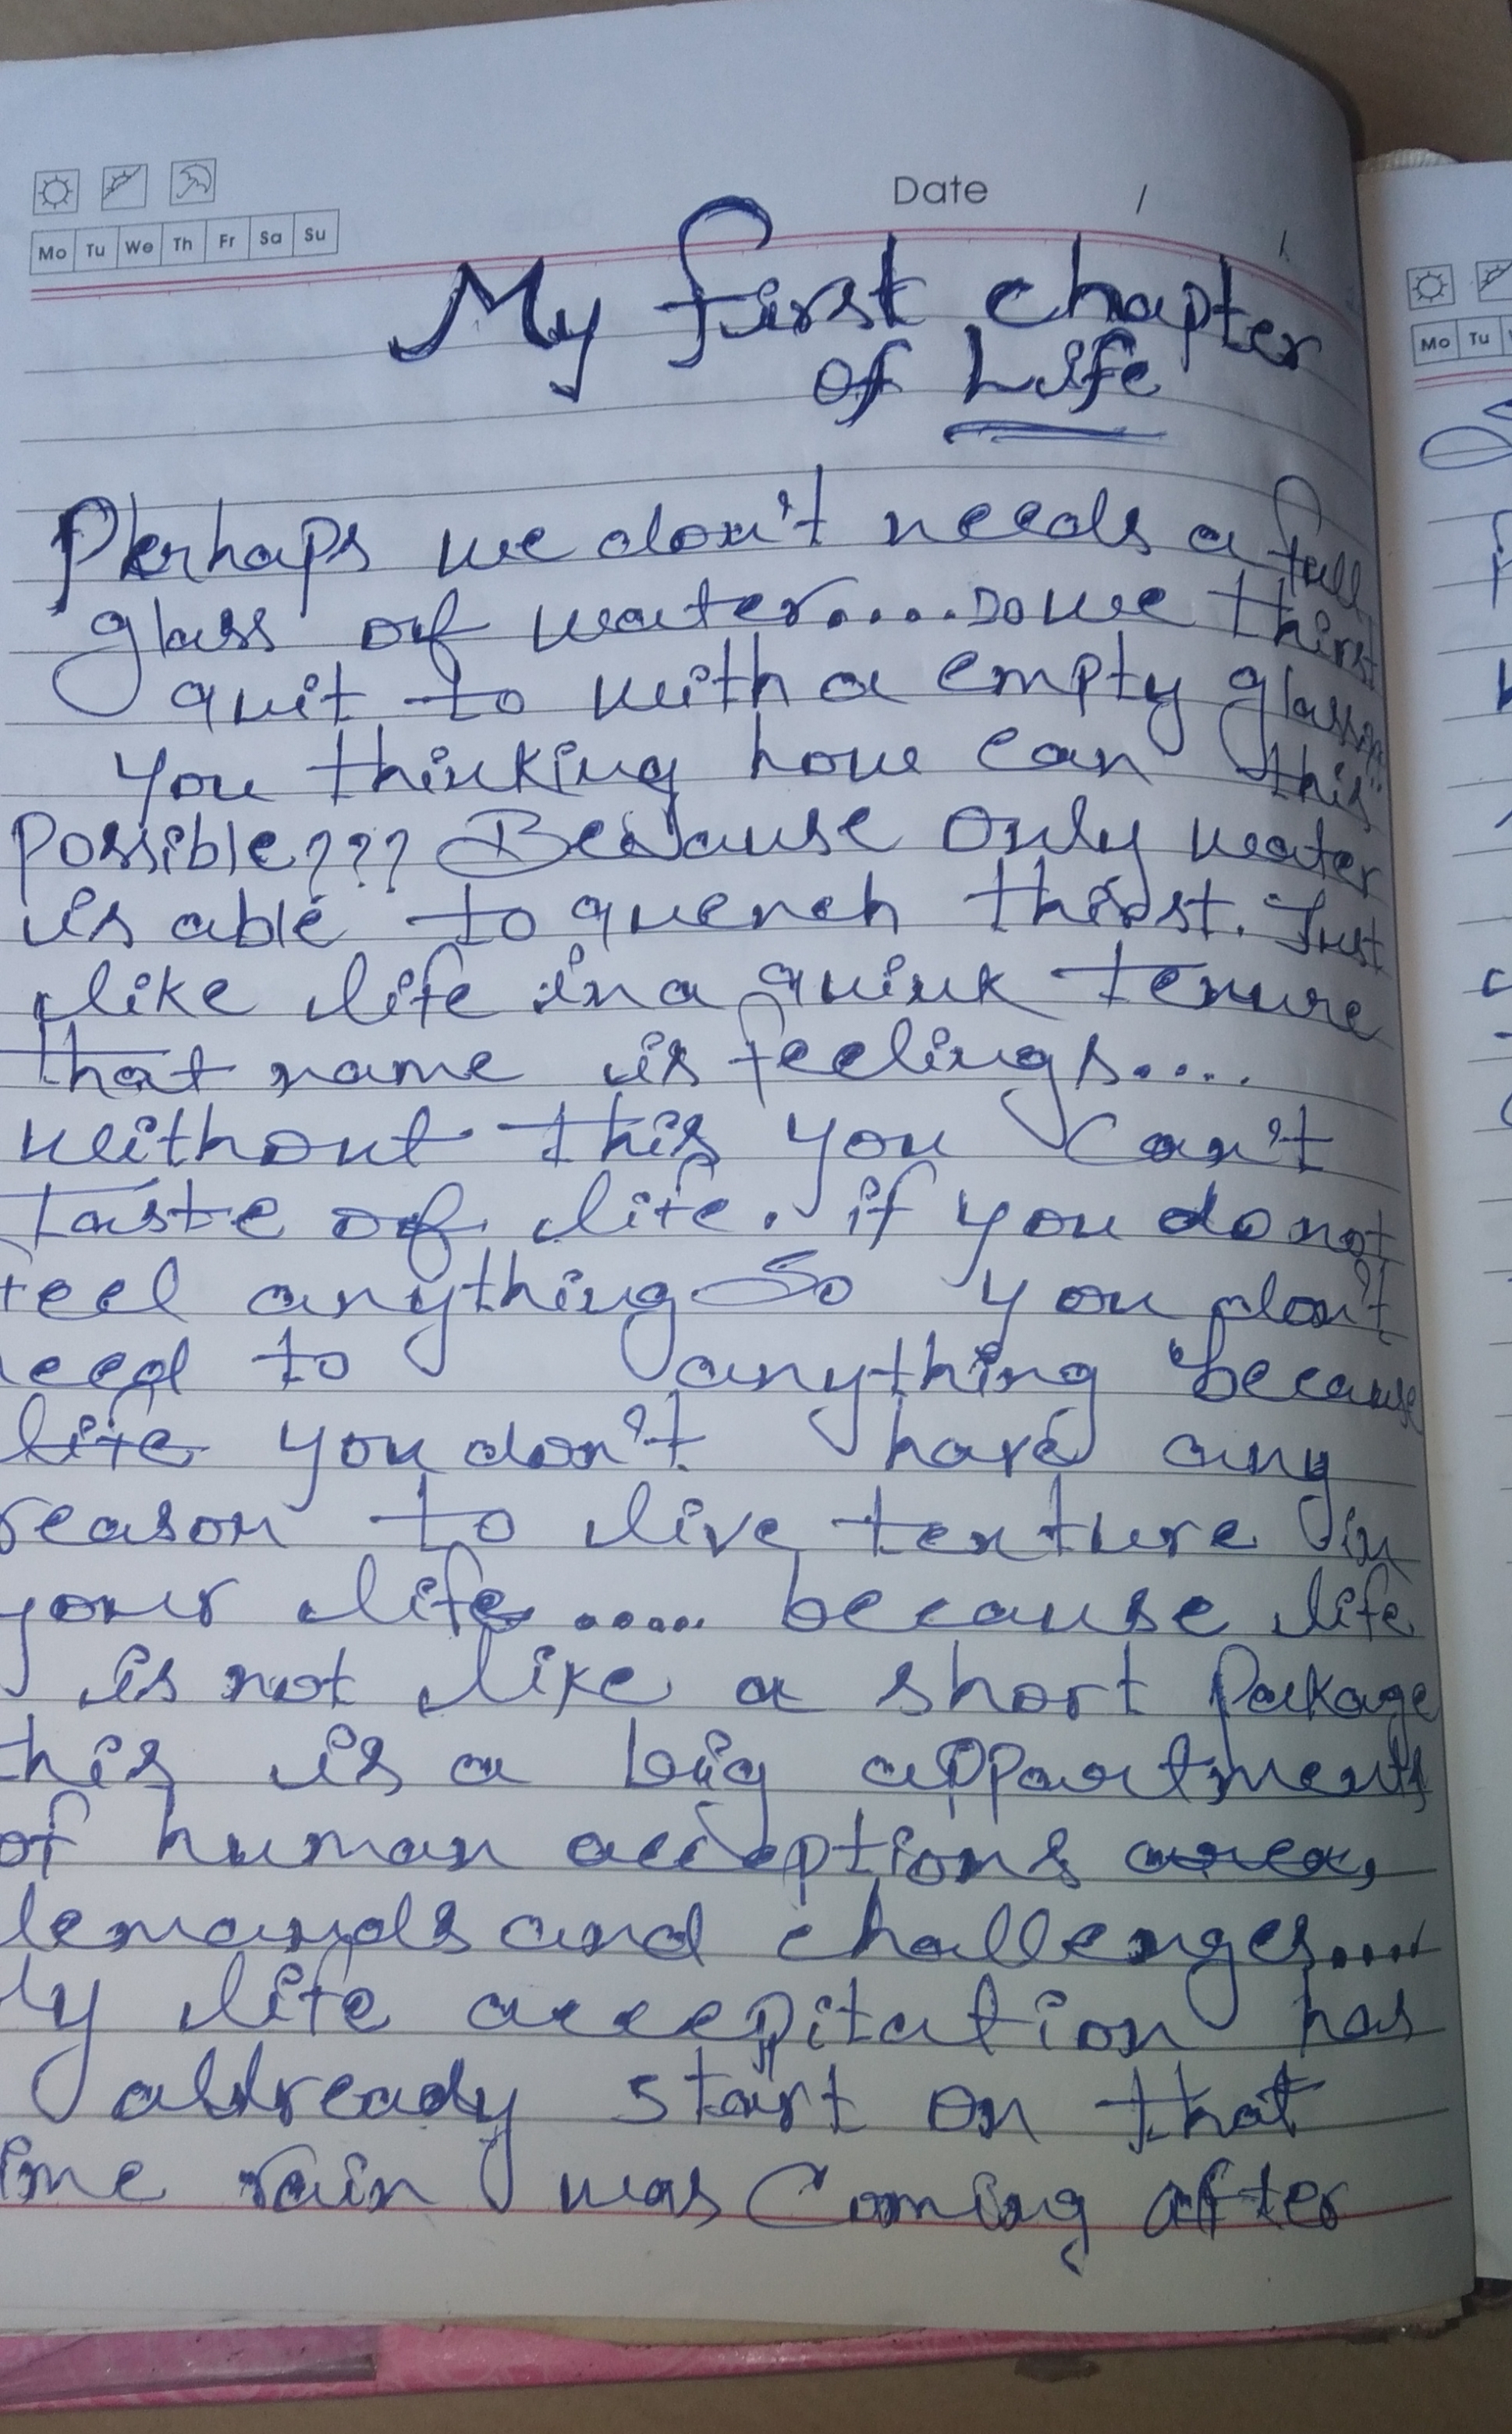 Date / /
Mo Tu We Th Fr Sa Su
My first chapter
of Life
Perhaps we don't needs a full
glass of water.... Do we thirst
quit to with a empty glass
you thinking how can this
Possible??? Because only water
is able to quench thirst. Just
like life in a quick tenure
that name is feelings....
without this you can't
taste of life. if you do not
feel anything So you don't
need to anything because
life you don't have any
reason to live texture in
your life ..... because life
is not like a short Package
this is a big appartments
of human acceptions area,
demands and challenges....
My life accepitation has
already start on that
time rain was Coming after
Mo Tu